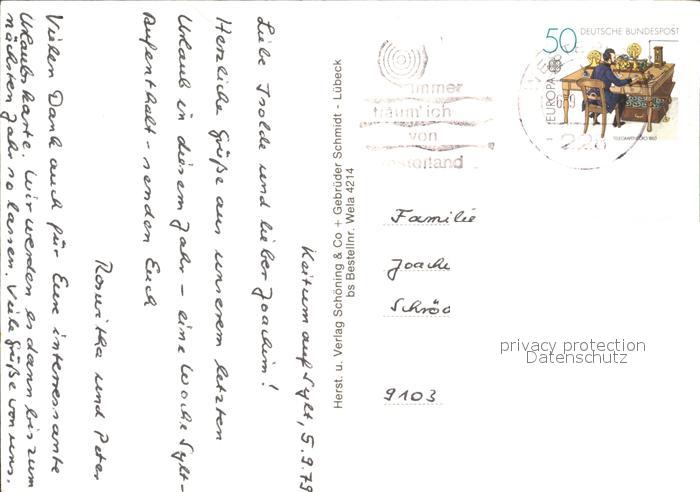 Keitum auf Sylt, 5.9.79
Liebe Isolde und lieber Joachim!
Herzliche Grüße aus unserem letzten
Urlaub in diesem Jahr – eine Woche Sylt-
Aufenthalt – senden Euch
Roswitha und Peter
Vielen Dank auch für Eure interessante
Urlaubskarte. Wir werden es dann bis zum
nächsten Jahr so lassen. Viele Grüße von uns.
Herst. u. Verlag Schöning & Co + Gebrüder Schmidt - Lübeck
bs Bestellnr. Wela 4214
immer
träum' ich
von
Westerland
50 DEUTSCHE BUNDESPOST
EUROPA CEPT
2280
Familie
Joachi
Schröd
9103
privacy protection
Datenschutz